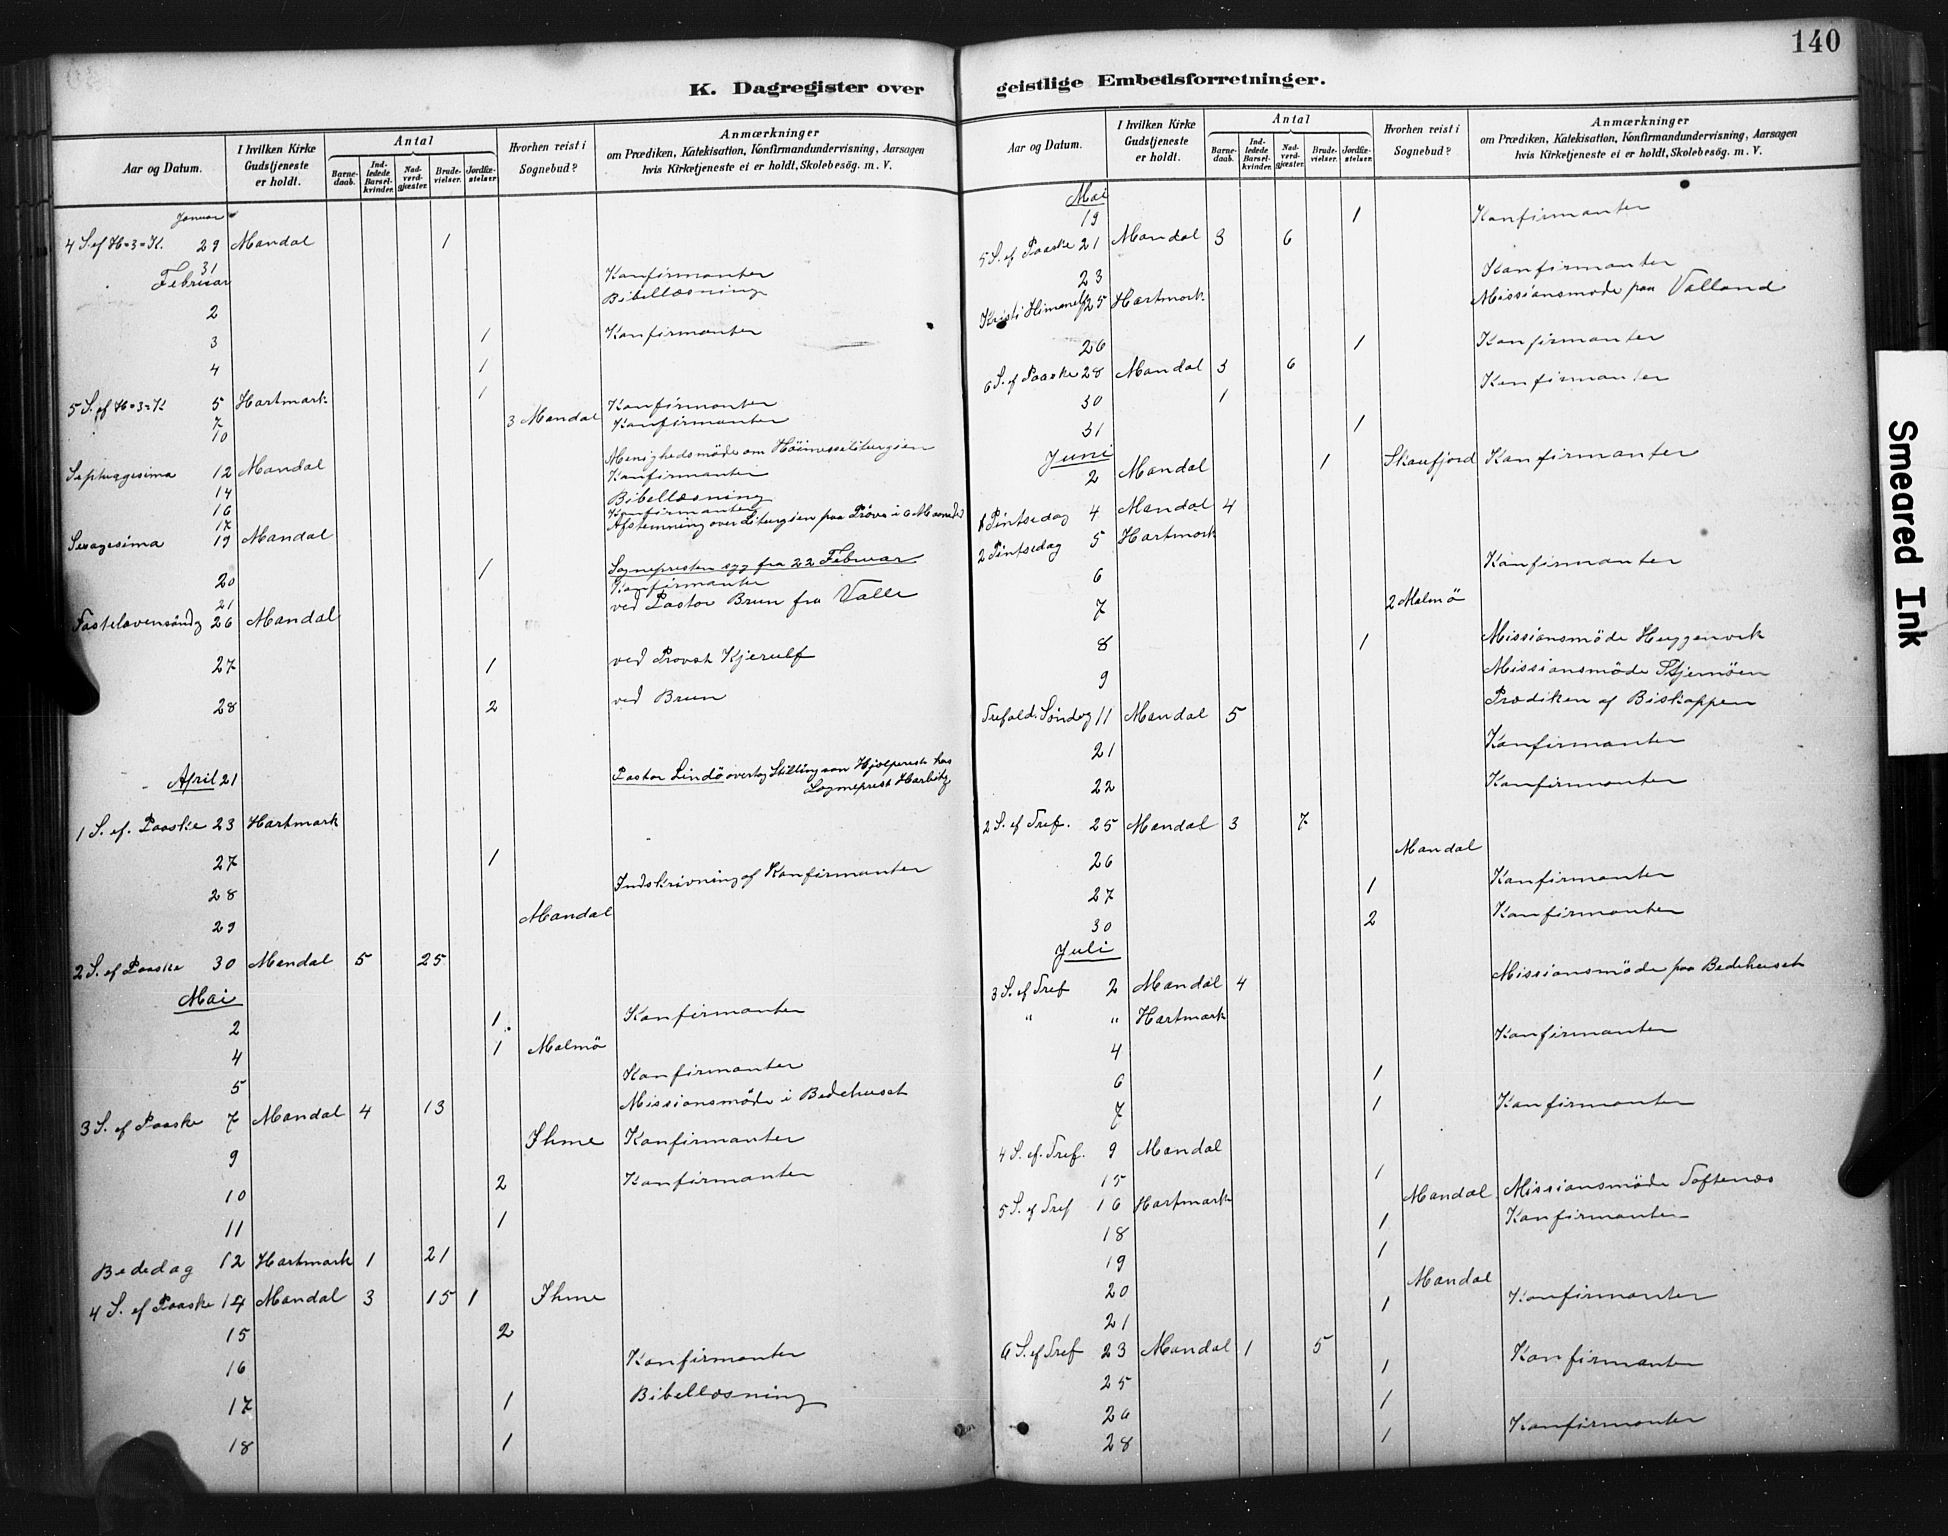 140
K. Dagregister over
Aar og Datum. I hvilken Kirke Gudstjeneste er holdt. Antal Barnedaab. Indledede Barselkvinder. Nadverdgjæster. Brudevielser. Jordfæstelser. Hvorhen reist i Sognebud? Anmærkninger om Prædiken, Katekisation, Konfirmandundervisning, Aarsagen hvis Kirketjeneste ei er holdt, Skolebesøg. m. V.
Januar
4 S. ef H=3=K. 29 Mandal 1
31 Konfirmanter
Februar Bibellæsning
2
3 1 Konfirmanter
4 1
5 S. ef H=3=K 5 Hartmark 1 Konfirmanter
7 3 Mandal Konfirmanter
10 Menighedsmöde om Höimesseliturgien
Septuagesima 12 Mandal Konfirmanter
14 Bibellæsning
16 Konfirmanter
17 Afstemning over Liturgien paa Pröve i 6 Maaneder
Sexagesima 19 Mandal
20 1 Sognepresten syg fra 22 Februar
21 Konfirmanter
Fastelavensöndg 26 Mandal ved Pastor Brun fra Valle
27 1 ved Provst Kjerulf
28 2 ved Brun
April 21 Pastor Lindö overtog Stilling som Hjælpeprest hos
Sogneprest Harbitz
1 S. ef. Paaske 23 Hartmark
27 1
28 Indskrivning af Konfirmanter
29 Mandal
2 S. ef Paaske 30 Mandal 5 25
Mai
2 1 Konfirmanter
4 1 Malmö
5 Konfirmanter
3 S. ef Paaske 7 Mandal 4 13 Missionsmöde i Bedehuset
9 Ihme Konfirmanter
10 2 Konfirmanter
11 1
Bededag 12 Hartmark 1 21
4 S. ef Paaske 14 Mandal 3 15 1 Ihme
15 2
16 Konfirmanter
17 1 Bibellæsning
18 1
geistlige Embedsforretninger.
Aar og Datum. I hvilken Kirke Gudstjeneste er holdt. Antal Barnedaab. Indledede Barselkvinder. Nadverdgjæster. Brudevielser. Jordfæstelser. Hvorhen reist i Sognebud? Anmærkninger om Prædiken, Katekisation, Konfirmandundervisning, Aarsagen hvis Kirketjeneste ei er holdt, Skolebesøg. m. V.
Mai
19 1 Konfirmanter
5 S. ef Paaske 21 Mandal 3 6
23 Konfirmanter
Kristi Himmelf 25 Hartmark Missionsmøde paa Valland
26 1 Konfirmanter
6 S. ef Paaske 28 Mandal 3 6
30 1 Konfirmanter
31 1
Juni
2 Mandal 1 Skaufjord Konfirmanter
1 Pintsedag 4 Mandal 4
2 Pintsedag 5 Hartmark
6 Konfirmanter
7 2 Malmö
8 1 Missionsmöde
9 Missionsmöde
Trefold. Söndag 11 Mandal 5 Prædiken af Biskoppen
21 Konfirmanter
22 Konfirmanter
2 S. ef Tref. 25 Mandal 3 7
26 Mandal
27 1 Konfirmanter
30 2 Konfirmanter
Juli
3 S. ef Tref 2 Mandal 4 Missionsmöde paa Bedehuset
" " Hartmark
4 Konfirmanter
6 1
7 1 Konfirmanter
4 S. ef. Tref. 9 Mandal
15 1
5 S. ef Tref 16 Hartmark Mandal Missionsmöde Toftenæs
18 1 Konfirmanter
19 1
20 Mandal
21 1 Konfirmanter
6 S. ef Tref 23 Mandal 1 5
25 1 Konfirmanter
26 1
28 1 Konfirmanter
Smeared Ink